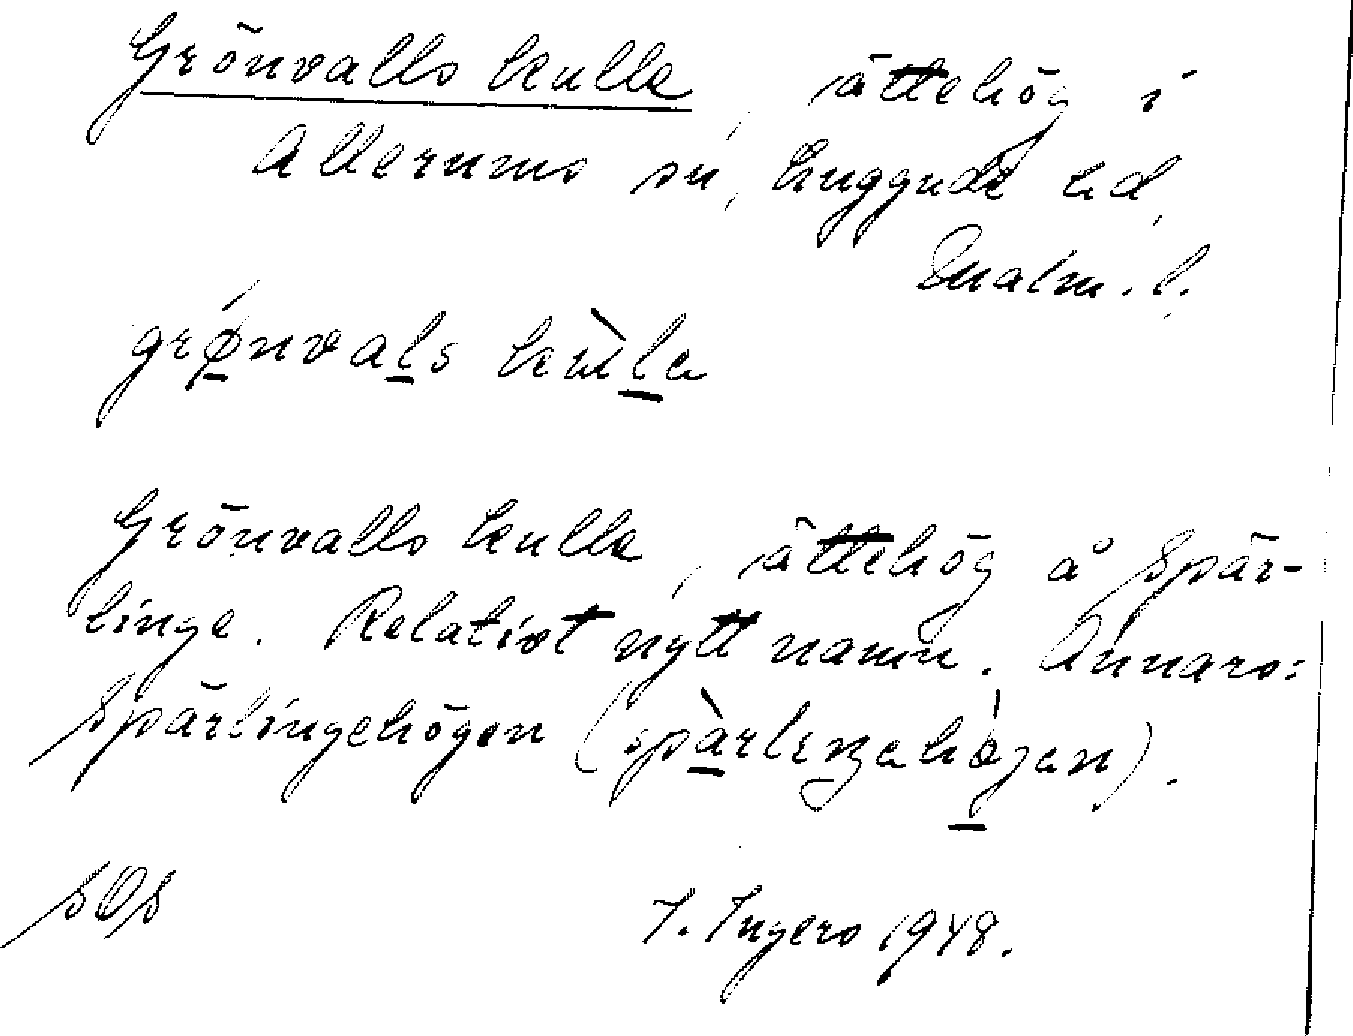 Grönvalls kulle, ättehög i
Allerums sn, Luggude hd,
Malm. l.
grǿnvals kùla
Grönvalls kulle, ättehög å Spär-
linge. Relativt nytt namn. Annars:
Spärlingehögen (spàrlıŋahøʒan).
SOS
I. Ingers 1948.